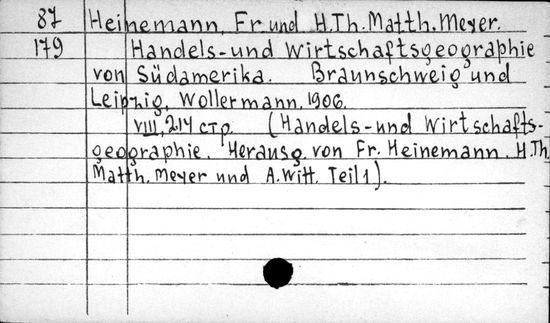 87 Heinemann, Fr. und H.Th. Matth. Meyer.
179 Handels-und Wirtschaftsgeographie
von Südamerika. Braunschweig und
Leipzig, Wollermann, 1906.
VIII, 214 стр. (Handels-und Wirtschafts-
geographie. Herausg. von Fr. Heinemann, H.Th.
Matth. Meyer und A. Witt. Teil 1).